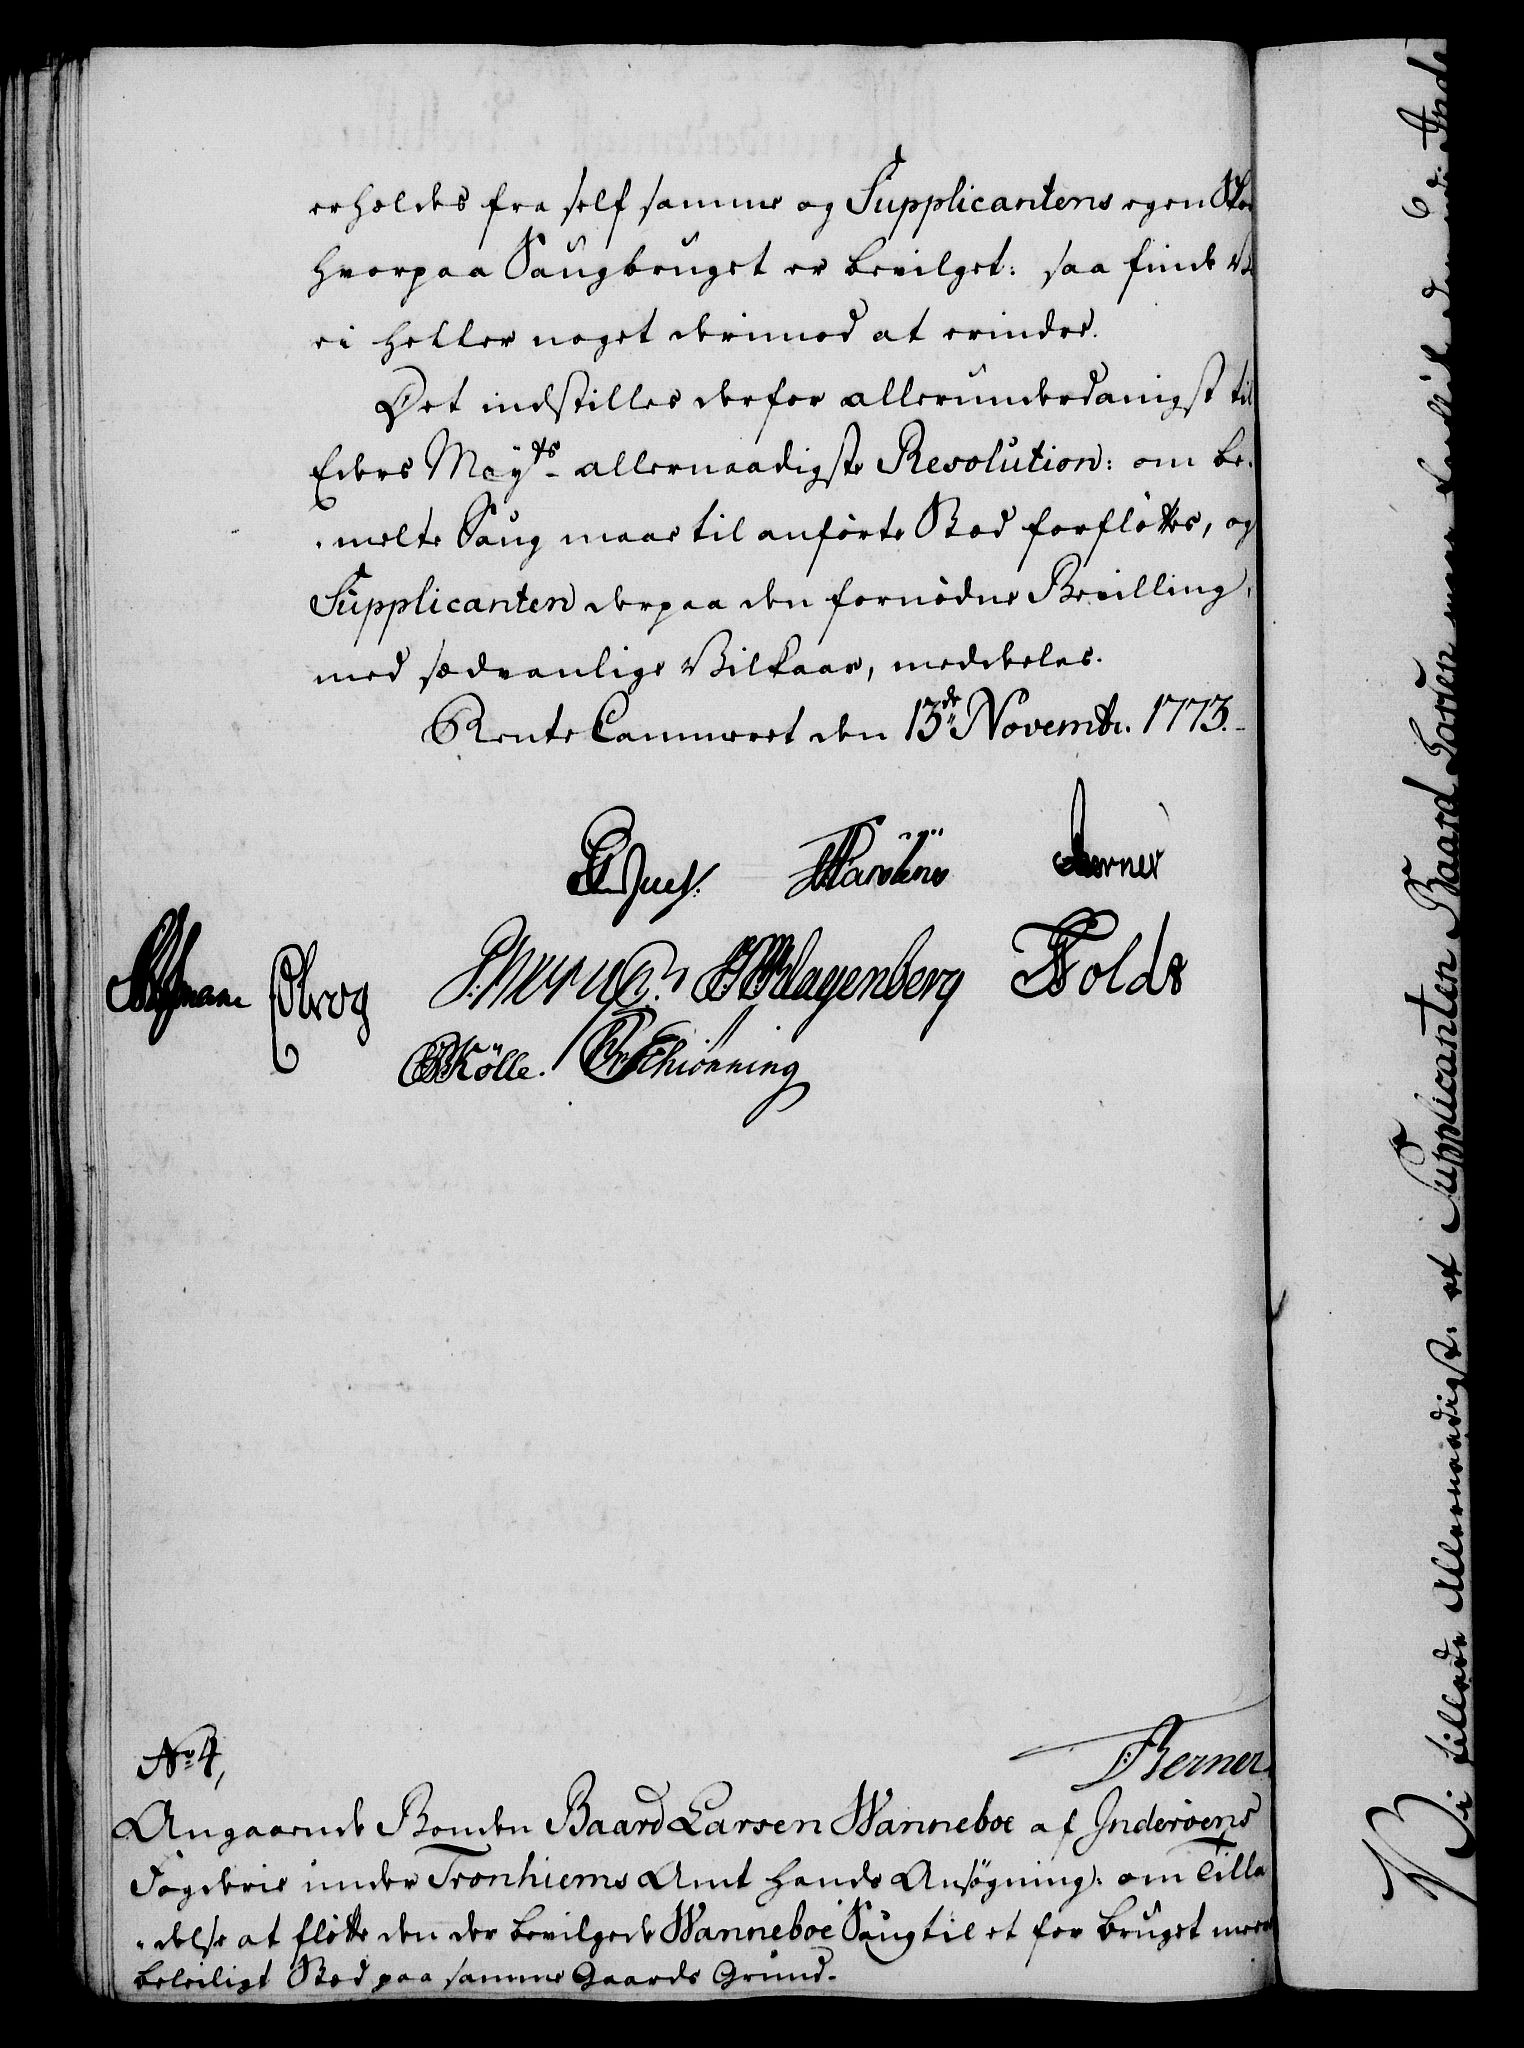 erholdes fra self samme og Supplicantens egen Skov
hvorpaa Saugbruget er bevilget: saa finde Vi
ei heller noget derimod at erindre.
Det indstilles derfor allerunderdanigst til
Eders Mayts allernaadigste Resolution: om be-
-melte Saug maae til anførte Stæd forfløttes, og
Supplicanten derpaa den fornødne Bevilling,
med sædvanlige Vilkaar, meddeeles.
Rente Cammeret den 13de Novembr. 1773.
Juel.
Berner
Obrog
Klagenberg
Holde
Kølle.
Schiønning
No 4,
Berner.
Angaaende Bonden Baard Larsen Wanneboe af Inderøens
Fogderie under Tronhiems Amt hands Ansøgning: om Tilla
-delse at fløtte den der bevilgede Wanneboe Saug til et for bruget meere
beleiligt Stæd paa samme Gaards Grund.
Vi tillade Allernaadigst: at Supplicanten Baard Larsen maae